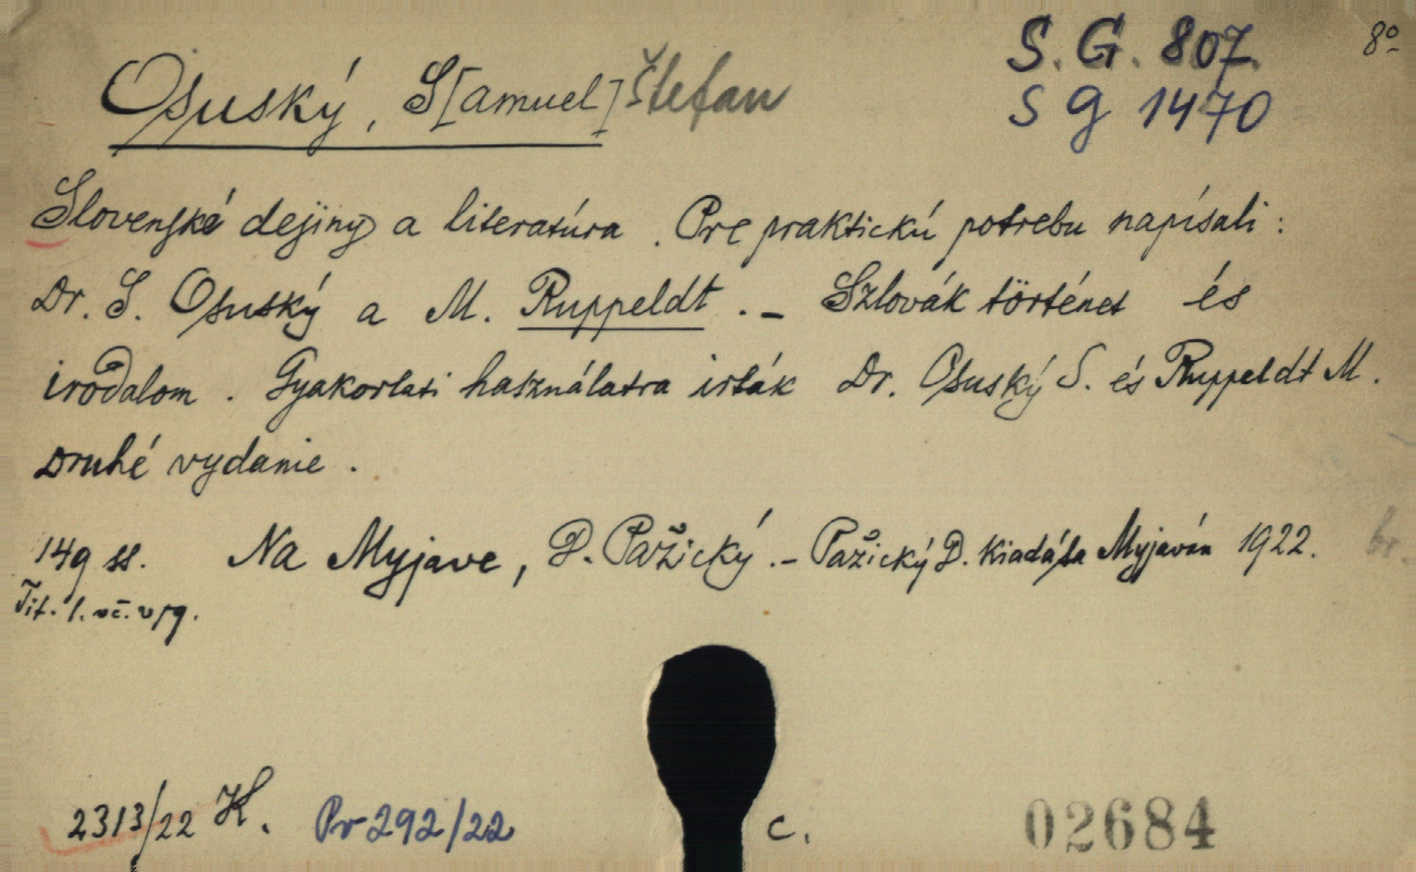 S. G. 807. 8°
Osuský, S[amuel] Štefan
S g 1470
Slovenské dejiny a literatúra. Pre praktickú potrebu napísali:
Dr. S. Osuský a M. Ruppeldt. - Szlovák történet és
irodalom. Gyakorlati használatra irták Dr. Osuský S. és Ruppeldt M.
Druhé vydanie.
149 ss. Na Myjave, D. Pažický. - Pažický D. kiadása Myjaván 1922. br.
Tit. l.
2313/22 K. Pr 292/22 c. 02684